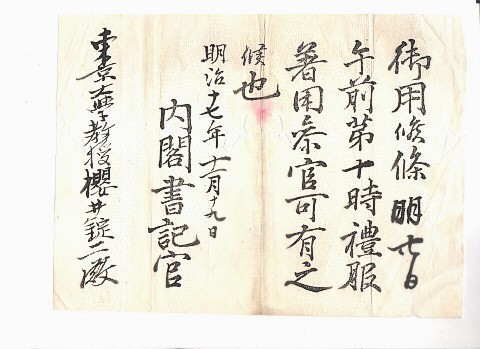 御用候條明廿日
午前第十時禮服
著用參官可有之
候也
明治十七年十一月十九日
内閣書記官
東京大學教授櫻井錠二殿